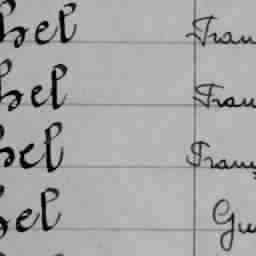 hel Fran
hel Fran
hel Franç
hel Gu